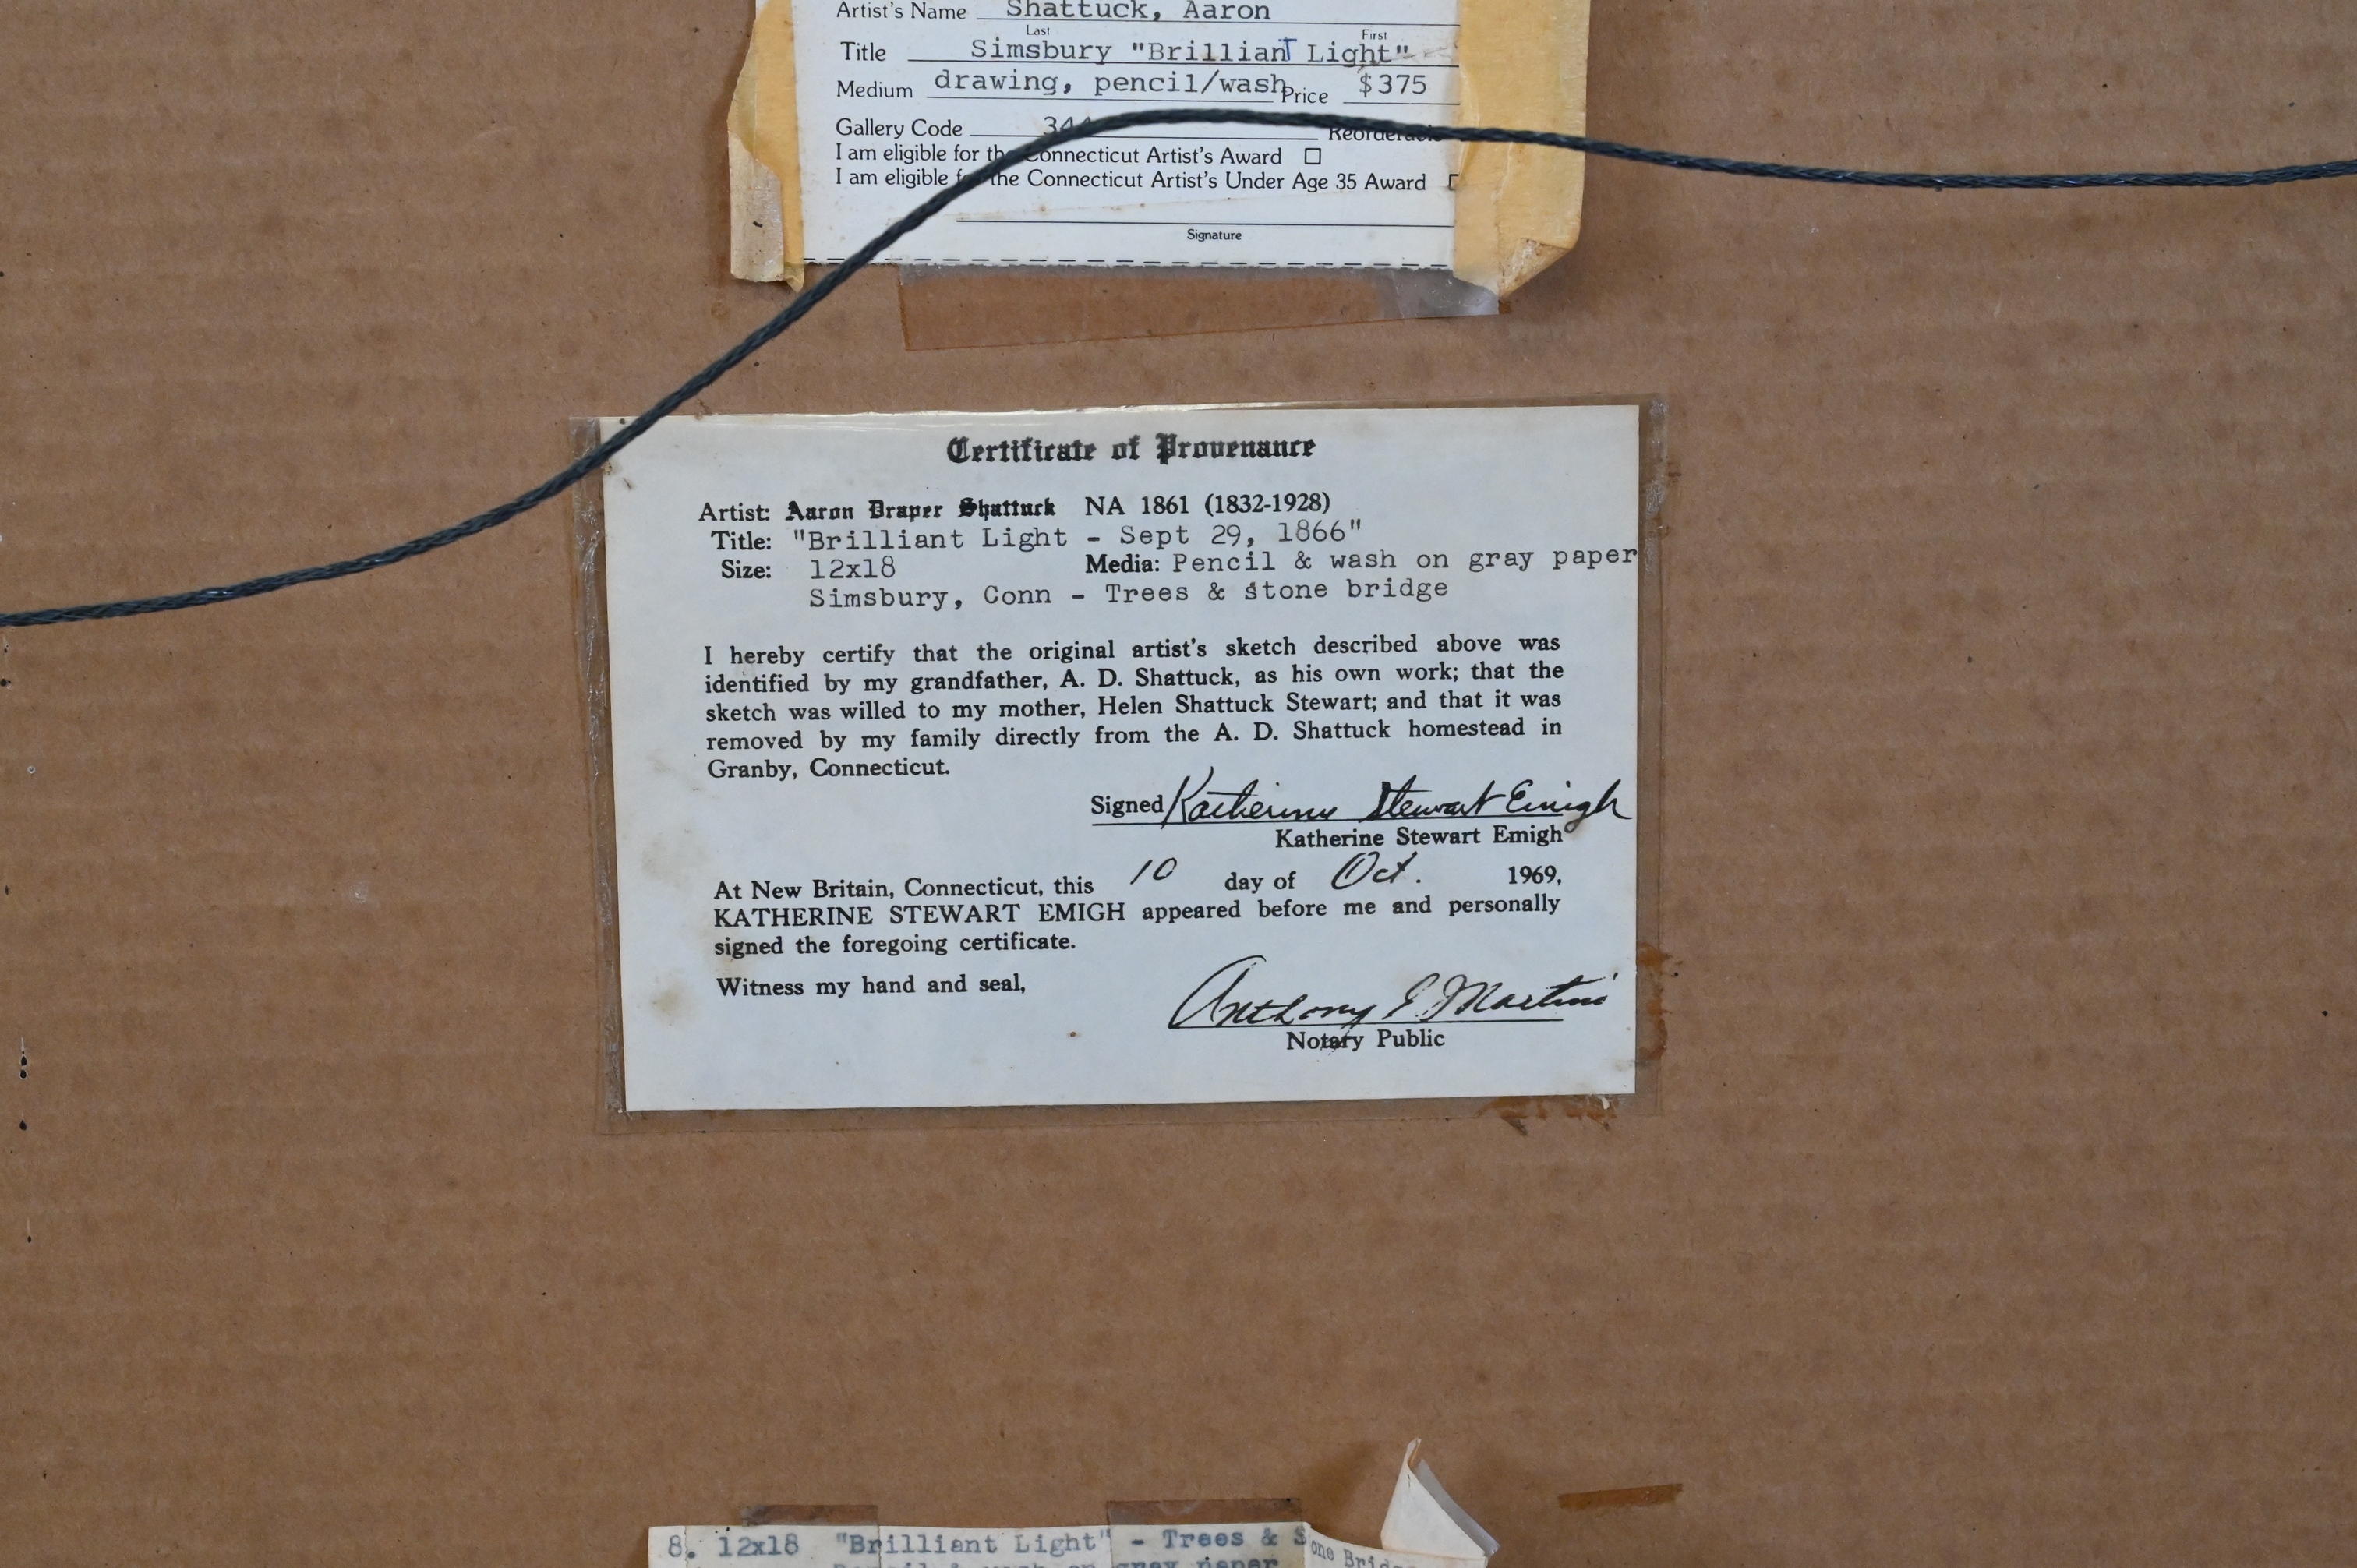 Artist's Name Shattuck, Aaron
Last First
Title Simsbury "BrillianT Light"
Medium drawing, pencil/wash Price $375
Gallery Code
I am eligible for the Connecticut Artist's Award
I am eligible for the Connecticut Artist's Under Age 35 Award
Signature
Certificate of Provenance
Artist: Aaron Draper Shattuck NA 1861 (1832-1928)
Title: "Brilliant Light - Sept 29, 1866"
Size: 12x18 Media: Pencil & wash on gray paper
Simsbury, Conn - Trees & stone bridge
I hereby certify that the original artist's sketch described above was
identified by my grandfather, A. D. Shattuck, as his own work; that the
sketch was willed to my mother, Helen Shattuck Stewart; and that it was
removed by my family directly from the A. D. Shattuck homestead in
Granby, Connecticut.
Signed Katherine Stewart Emigh
Katherine Stewart Emigh
At New Britain, Connecticut, this 10 day of Oct. 1969,
KATHERINE STEWART EMIGH appeared before me and personally
signed the foregoing certificate.
Witness my hand and seal,
Anthony J Martini
Notary Public
8. 12x18 "Brilliant Light" - Trees & Stone Bridge
Pencil & wash on gray paper